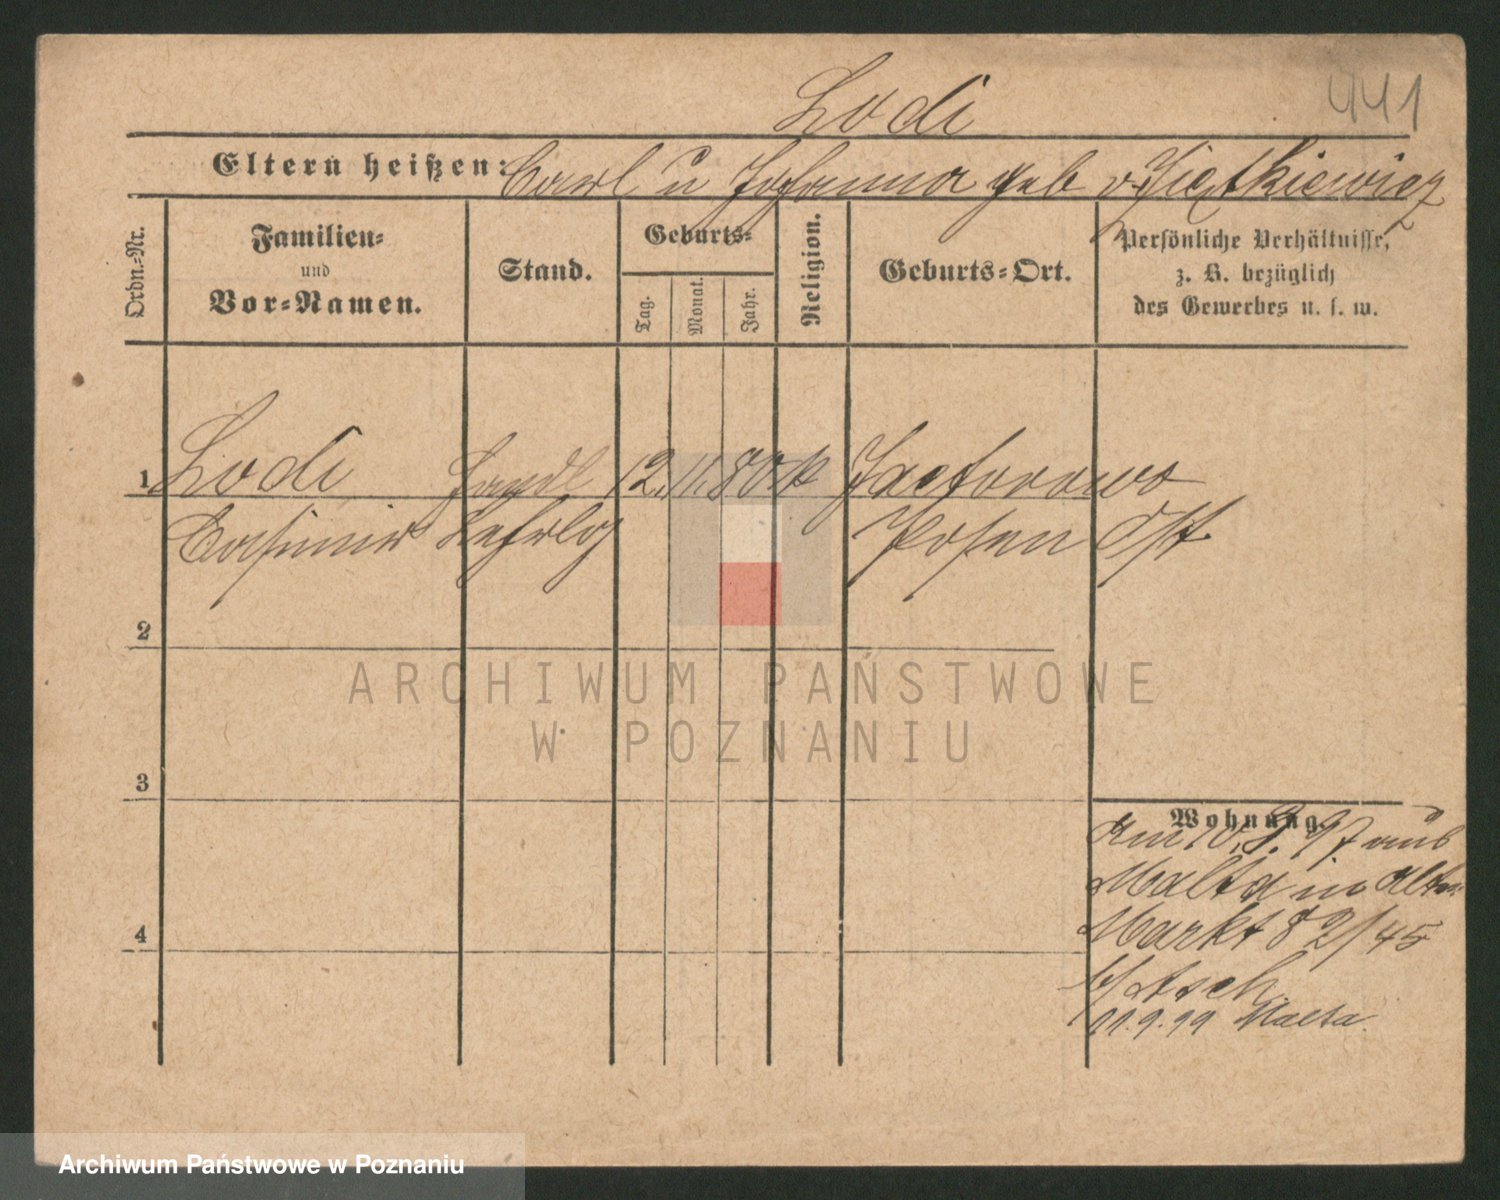 441
Lodi
Eltern heißen: Carl u Johanna geb v. Zietkiewicz
Ordn.-Nr.
Familien-
und
Vor-Namen.
Stand.
Geburts-
Tag.
Monat.
Jahr.
Religion.
Geburts-Ort.
Persönliche Verhältnisse,
z. B. bezüglich
des Gewerbes u. s. w.
1 Lodi Handl 12. 11. 80 k Jactorowo
Casimir Lehrlg Posen Ost
2
3
4
Wohnung.
Am 10. 8. 97 aus
Malta in Alten
Markt 82/45
b/ Asch
11.9.99 Malta.
ARCHIWUM PAŃSTWOWE
W POZNANIU
Archiwum Państwowe w Poznaniu